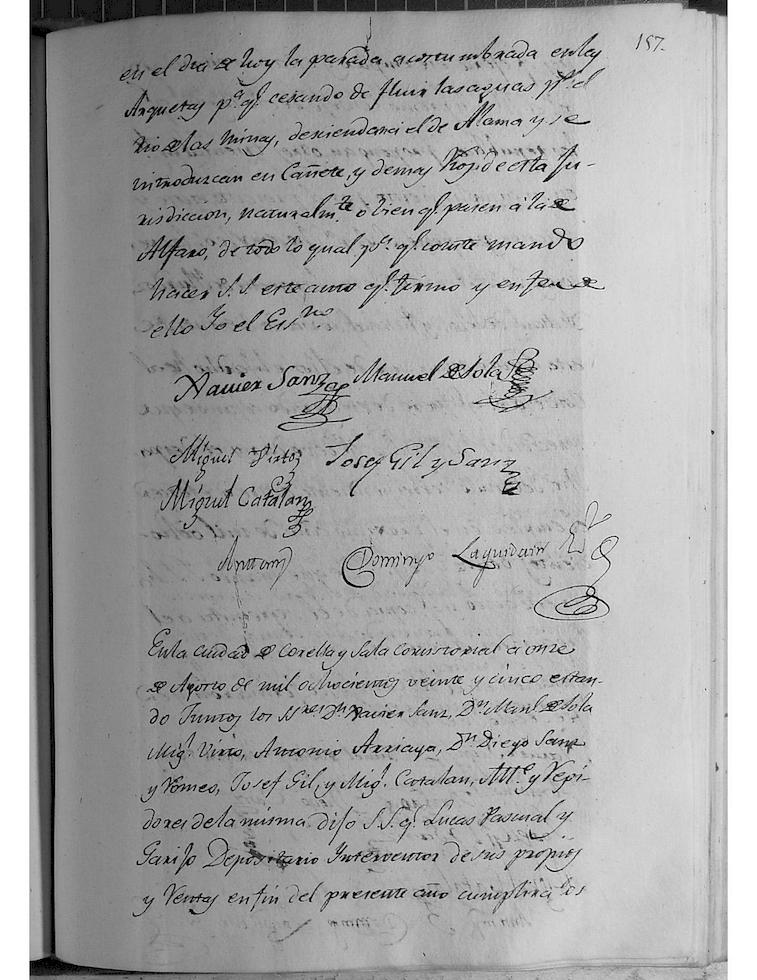 157.
en el dia de hoy la parada acostumbrada en las
Arquetas pa. q.e cesando de fluir las aguas pr. el
Rio de las Minas, desciendan ci el de Alama y se
introduzcan en Cañete, y demas Rios de esta Ju-
risdiccion, naturalm.te ó bien q.e pasen á la de
Alfaro, de todo lo qual pa. q.e conste mando
hacer S.S. este auto q.e firmo y en fee de
ello Yo el Ess.no
Xavier Sanz Manuel de Sola
Miguel Virto Josef Gil y Sanz
Miguel Catalan
Antoni Domingo Laquidain
En la ciudad de Corella y Sala Consistorial á once
de Agosto de mil ochocientos veinte y cinco estan-
do Juntos los SS.res Dn. Xavier Sanz, Dn. Manl. de Sola
Migl. Virto, Antonio Arriaga, Dn. Diego Sanz
y Yomeo, Josef Gil, y Migl. Catalan, Alle. y Reji-
dores de la misma dijo S.S. q.e Lucas Pascual y
Garijo Depositario Interventor de sus propios
y Rentas en fin del presente año cumplirá los